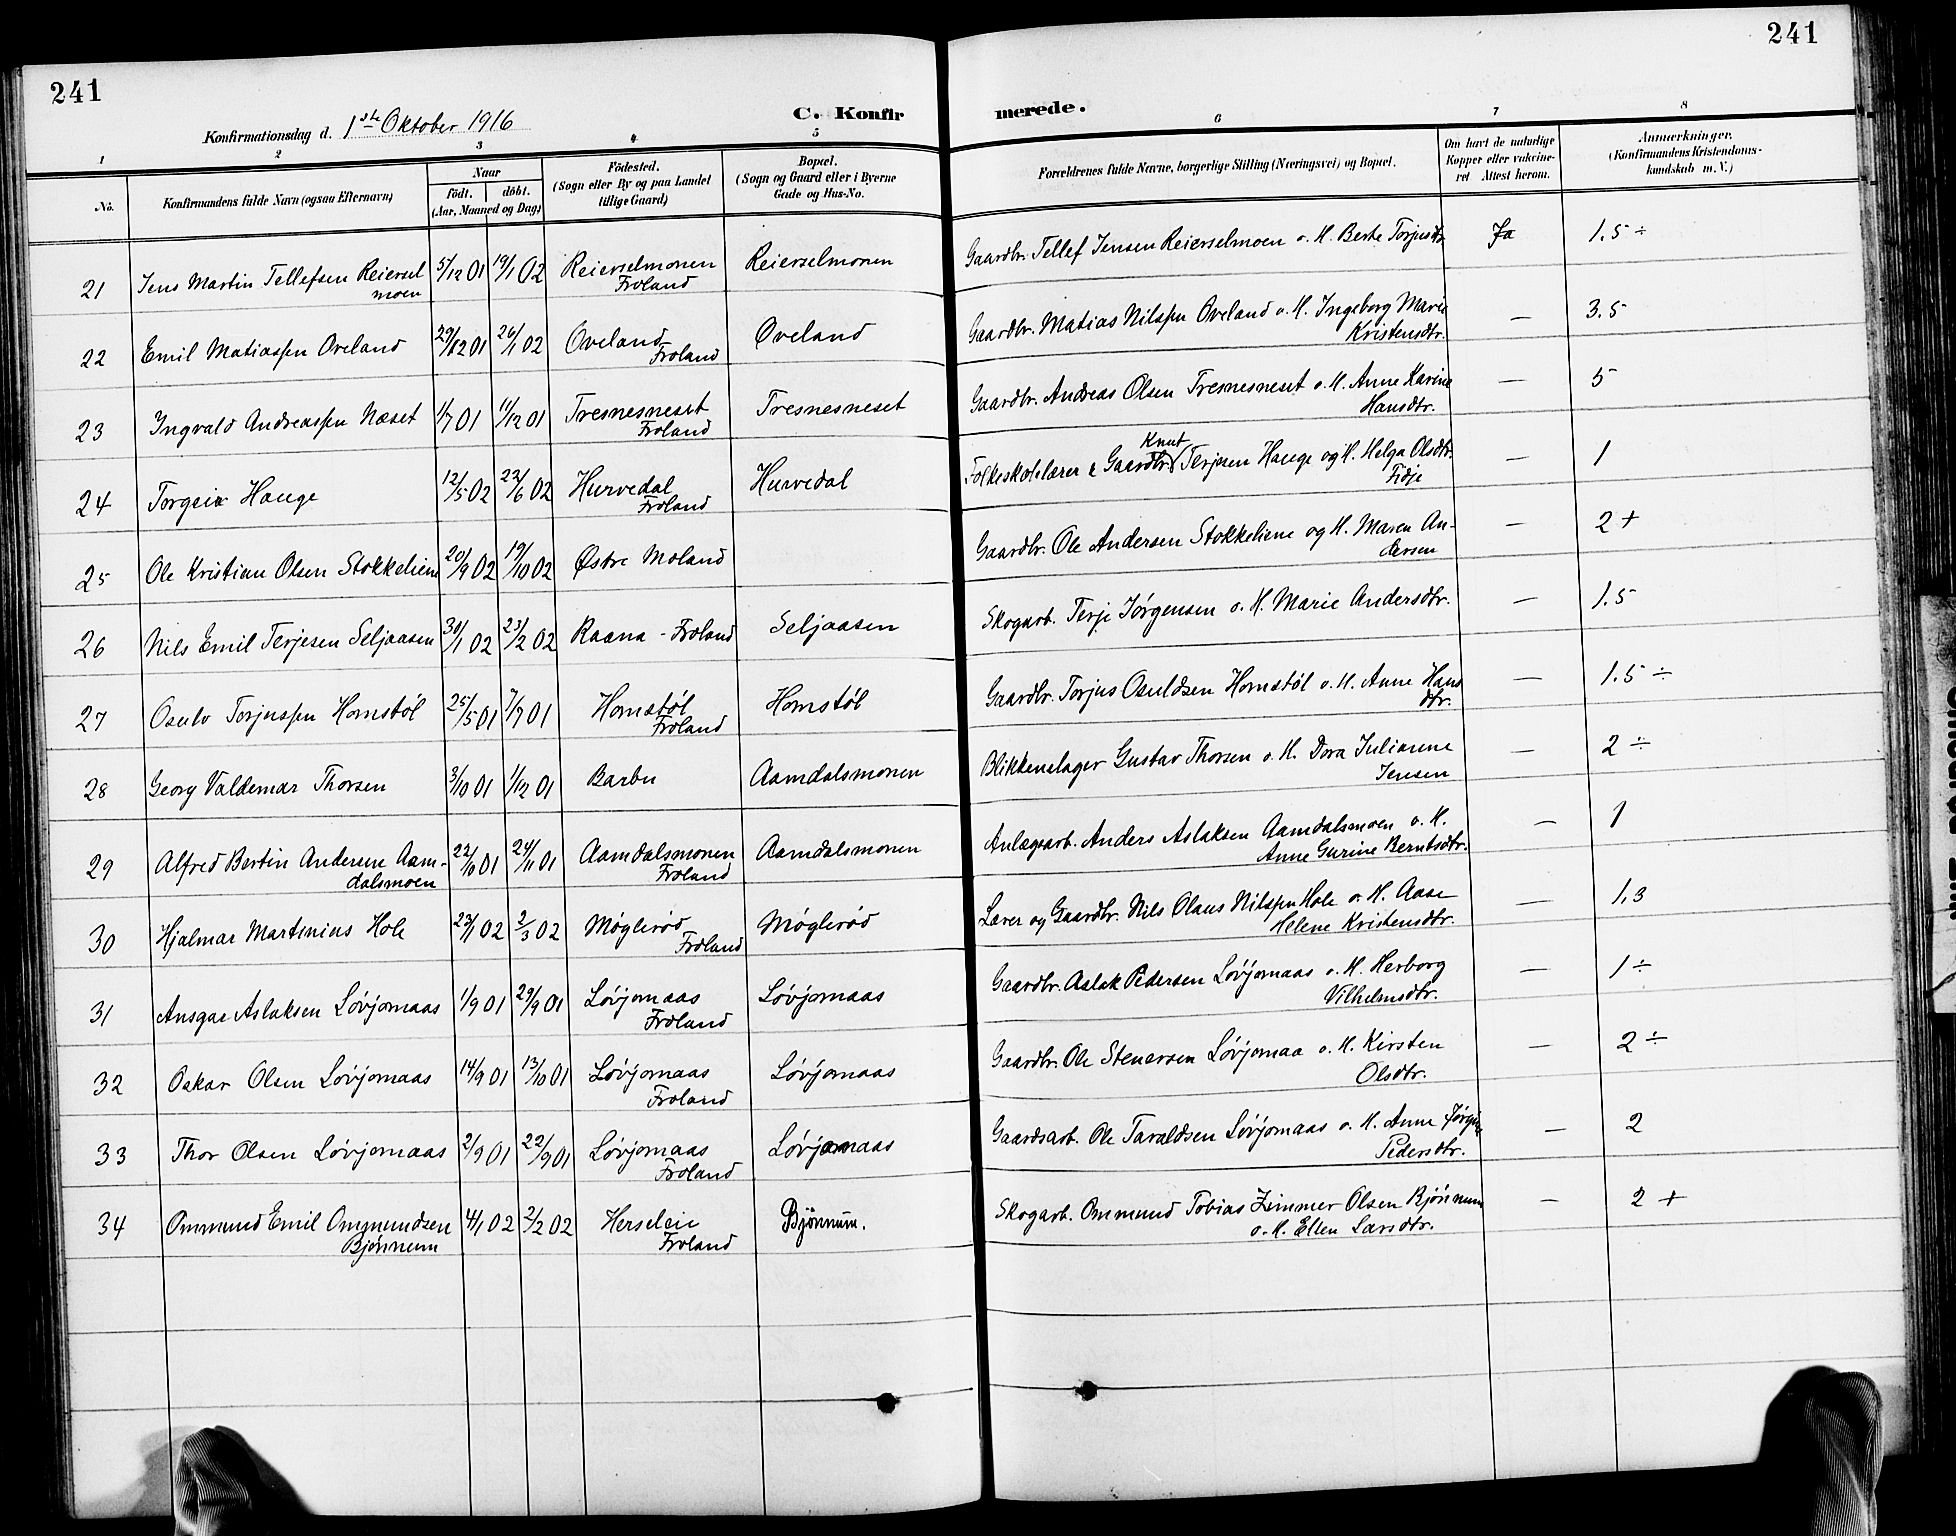 241
Konfirmationsdag d. 1ste Oktober 1916
C. Konfir
merede.
241
1 2 3 4 5 6 7 8
No.
Konfirmandens fulde Navn (ogsaa Efternavn)
Naar
födt. döbt.
(Aar, Maaned og Dag)
Födested.
(Sogn eller By og paa Landet
tillige Gaard)
Bopæl.
(Sogn og Gaard eller i Byerne
Gade og Hus-No.
Forældrenes fulde Navne, borgerlige Stilling (Næringsvei) og Bopæl.
Om havt de naturlige
Kopper eller vaksine-
ret Attest herom.
Anmærkninger.
(Konfirmandens Kristendoms-
kundskab m. V.)
21 Jens Martin Tellefsen Reiersel 5/12 01 19/1 02 Reierselmonen Reierselmonen Gaardbr. Tellef Jensen Reierselmoen o. H. Berte Torjusdtr. Ja 1.5 ÷
moen Froland
22 Emil Matiassen Oveland 29/12 01 26/1 02 Oveland Oveland Gaardbr. Matias Nilssen Oveland o. H. Ingeborg Marie — 3.5
Froland Kristensdtr.
23 Ingvald Andreassen Næset 1/7 01 11/12 01 Tresnesneset Tresnesneset Gaardbr. Andreas Olsen Tresnesneset o. H. Anne Karine — 5
Froland Hansdtr.
Knut
24 Torgeir Hauge 12/5 02 22/6 02 Hurvedal Hurvedal Folkeskolelærer & Gaardbr. Terjesen Hauge og H. Helga Olsdtr. — 1
Froland Fidje
25 Ole Kristian Olsen Stokkeliene 20/9 02 19/10 02 Østre Moland Gaardbr. Ole Andersen Stokkeliene og H. Maren An- — 2 +
dersen
26 Nils Emil Terjesen Seljaasen 30/1 02 23/2 02 Raana - Froland Seljaasen Skogarb. Terje Jørgensen o. H. Marie Andersdtr. — 1.5
27 Osulv Torjussen Homstøl 25/5 01 7/7 01 Homstøl Homstøl Gaardbr. Torjus Osuldsen Homstøl o. H. Anne Hans — 1.5 ÷
Froland dtr.
28 Georg Valdemar Thorsen 3/10 01 1/12 01 Barbu Aamdalsmonen Blikkenslager Gustav Thorsen o. H. Dora Julianne — 2 ÷
Jensen
29 Alfred Bertin Andersen Aam- 22/10 01 24/11 01 Aamdalsmonen Aamdalsmonen Anlægsarb. Anders Aslaksen Aamdalsmoen o. H. — 1
dalsmoen Froland Anne Gurine Berntsdtr.
30 Hjalmar Martinius Hole 23/1 02 2/3 02 Møglerød Møglerød Lærer og Gaardbr. Nils Olaus Nilssen Hole o. H. Aase — 1,3
Froland Helene Kristensdtr.
31 Ansgar Aslaksen Løvjomaas 1/9 01 29/9 01 Løvjomaas Løvjomaas Gaardbr. Aslak Pedersen Løvjomaas o. H. Herborg — 1 ÷
Froland Vilhelmsdtr.
32 Oskar Olsen Løvjomaas 14/9 01 13/10 01 Løvjomaas Løvjomaas Gaardbr. Ole Stenersen Løvjomaa o. H. Kirsten — 2 ÷
Froland Olsdtr.
33 Thor Olsen Løvjomaas 2/9 01 22/9 01 Løvjomaas Løvjomaas Gaardsarb. Ole Taraldsen Løvjomaas o. H. Anne Jørgine — 2
Froland Pedersdtr.
34 Ommund Emil Ommundsen 4/1 02 2/2 02 Herseleie Bjönnum. Skogarb. Ommund Tobias Zimmer Olsen Bjönnum — 2 +
Bjönnum Froland o. H. Ellen Larsdtr.